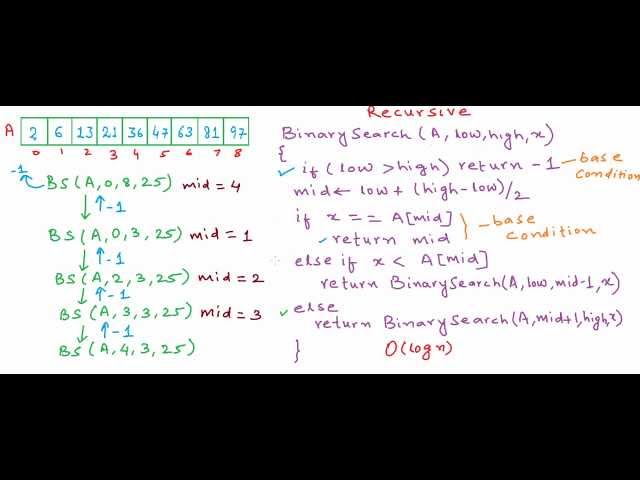 A 2 6 13 21 36 47 63 81 97
0 1 2 3 4 5 6 7 8
-1
BS(A,0,8,25) mid = 4
-1
BS(A,0,3,25) mid = 1
-1
BS(A,2,3,25) mid = 2
-1
BS(A,3,3,25) mid = 3
-1
BS(A,4,3,25)
Recursive
BinarySearch(A,low,high,x)
{
if(low>high) return -1 - base condition
mid← low+(high-low)/2
if x == A[mid]
return mid
} - base condition
else if x < A[mid]
return BinarySearch(A,low,mid-1,x)
else
return BinarySearch(A,mid+1,high,x)
}
O(log n)